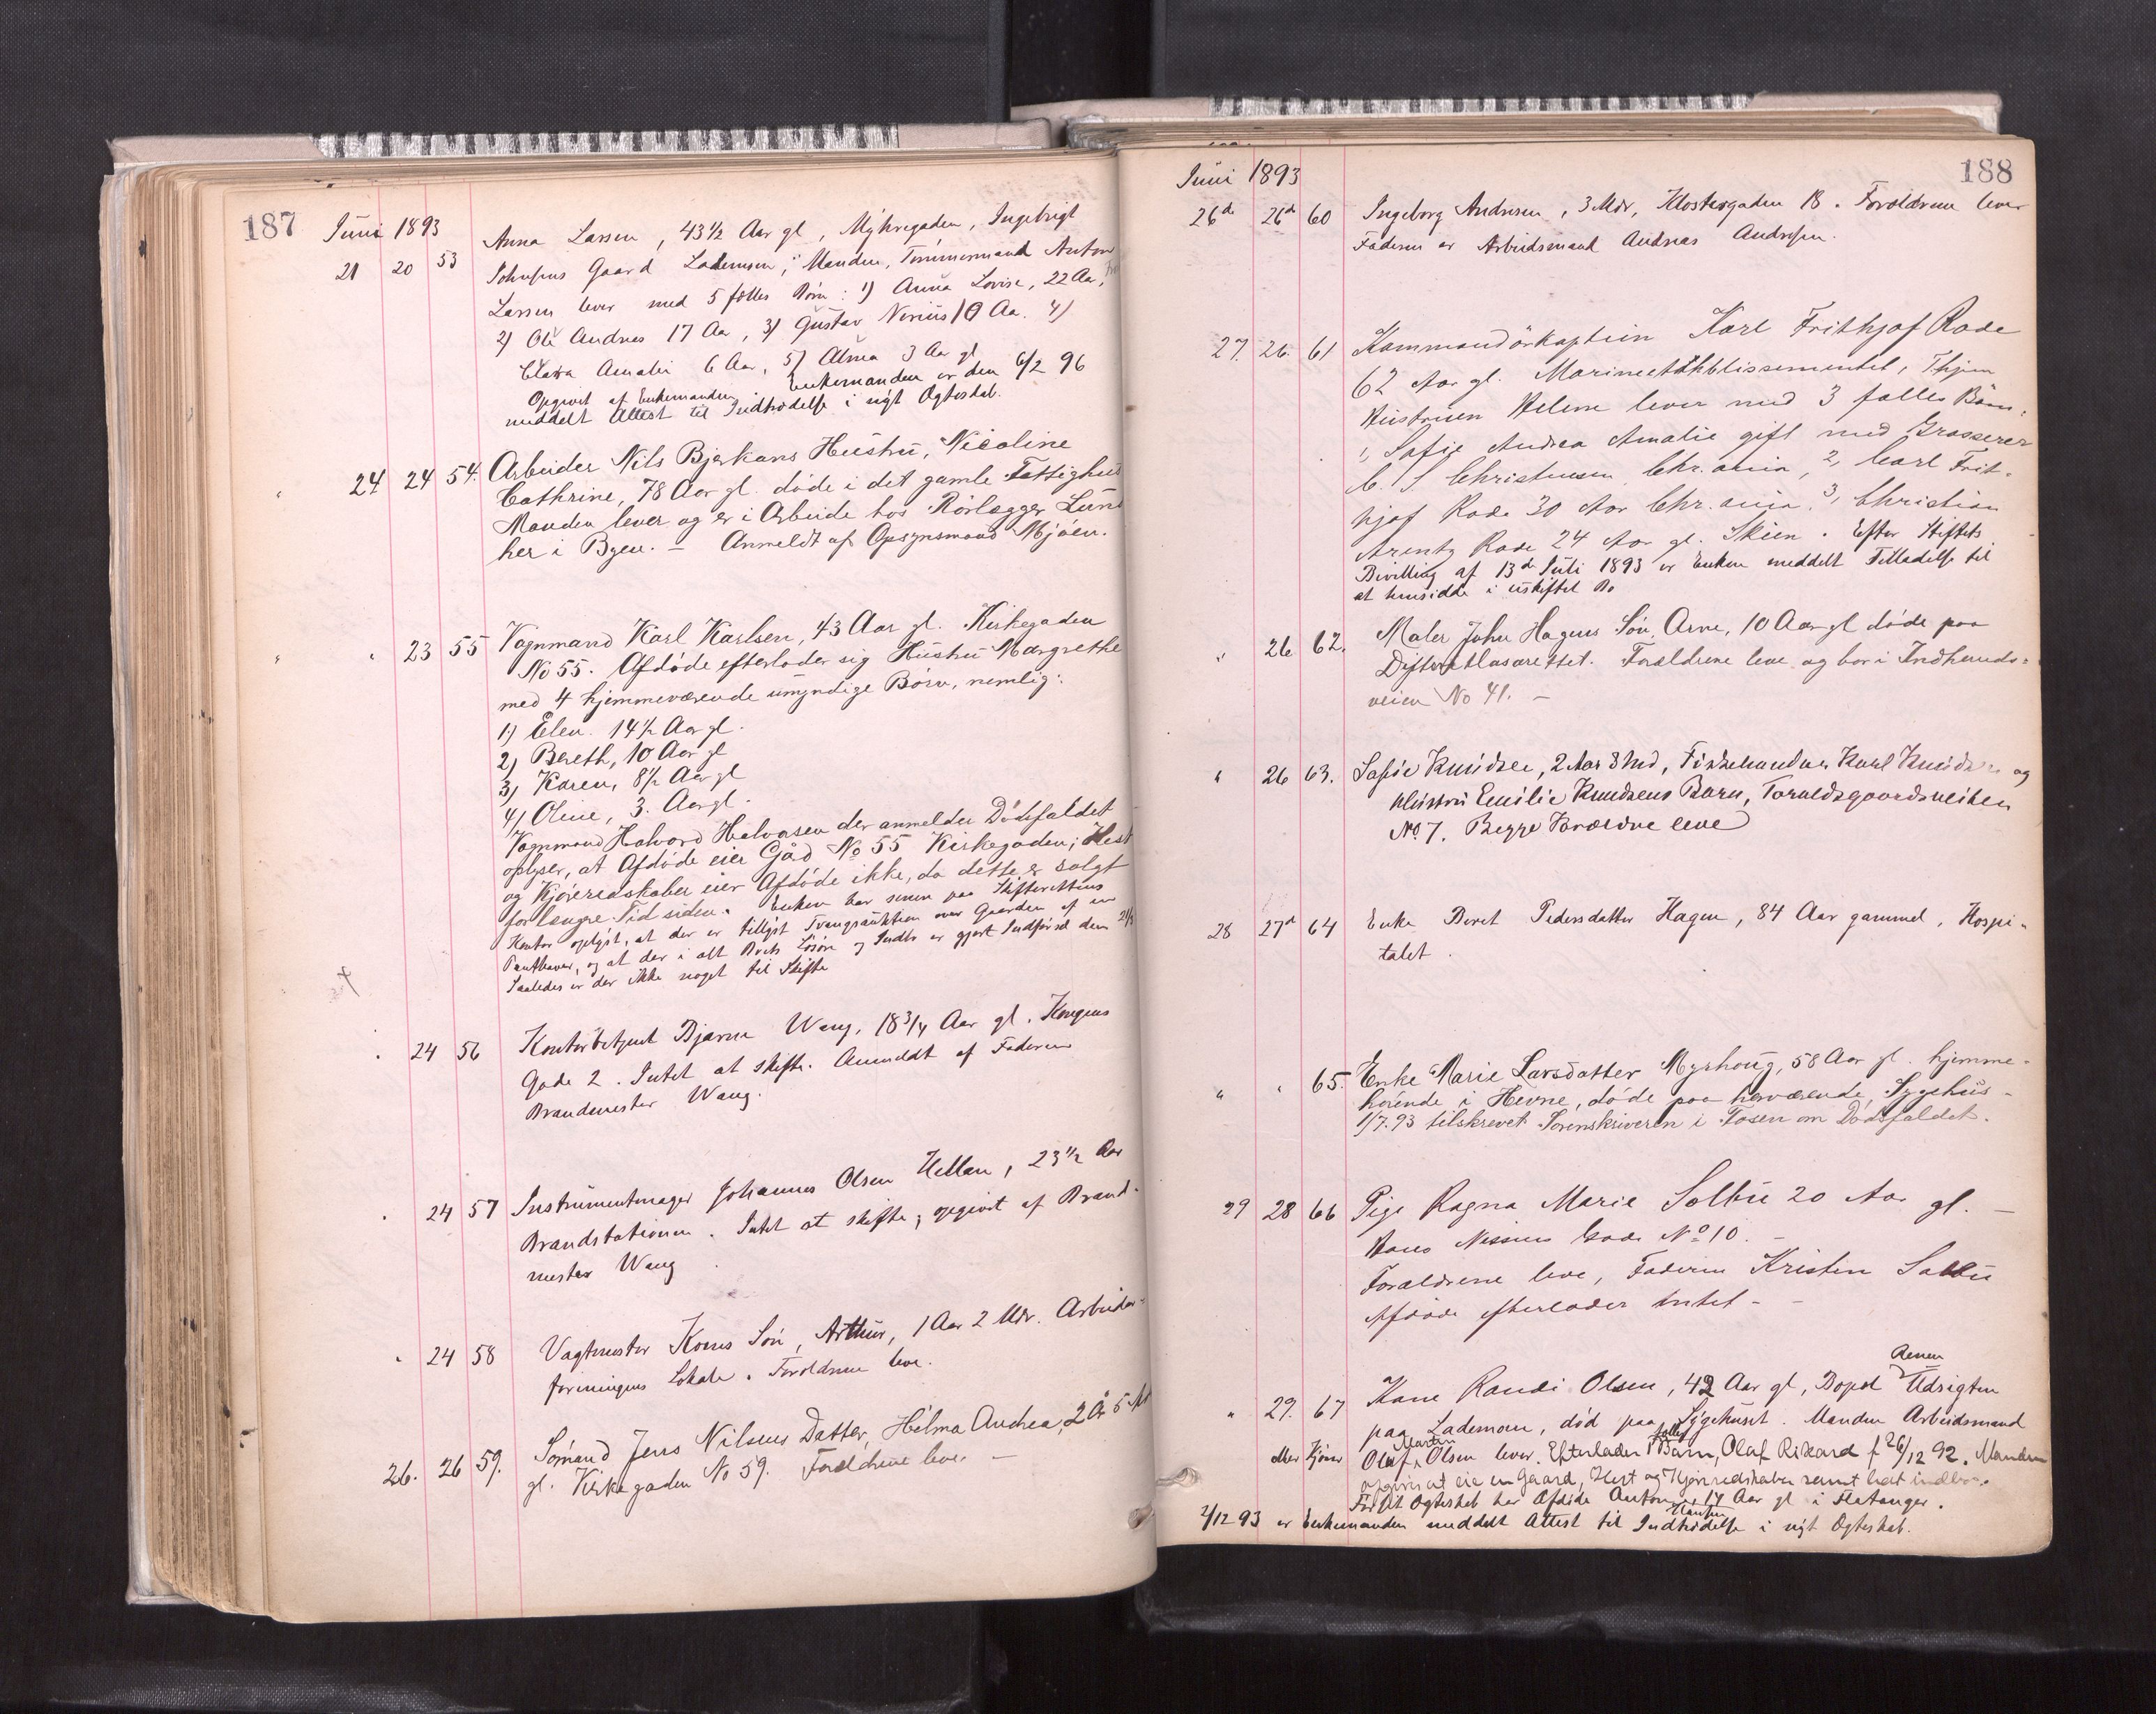 187 Juni 1893
21 20 53 Anna Larsen, 43½ Aar gl, Myhregaden, Ingebrigt
Johnsens Gaard Lademoen, Manden, Tømmermand Anton
Larsen lever med 5 fælles Børn: 1) Anna Lovise, 22 Aar,
2) Ole Andreas 17 Aa, 3) Gustav Nerius 10 Aa. 4)
Clara Amalie 6 Aar, 5) Alma 3 Aar gl
Opgivet af Enkemanden. Enkemanden er den 6/2 96
meddelt Attest til Indtrædelse i nyt Ægteskab.
" 24 24 54. Arbeider Nils Bjerkans Hustru, Nicoline
Cathrine, 78 Aar gl. døde i det gamle Fattighus
Manden lever og er i Arbeide hos Rørlægger Lund
her i Byen. — Anmeldt af Opsynsmand Mjøen.
" " 23 55 Vognmand Karl Karlsen, 43 Aar gl. Kirkegaden
No 55. Afdøde efterlader sig Hustru Margrethe
med 4 hjemmeværende umyndige Børn, nemlig:
1) Elen. 14½ Aar gl.
2) Bereth, 10 Aar gl
3) Karen, 8½ Aar gl
4) Oline, 3. Aar gl.
Vognmand Halvord Halvorsen der anmelder Dødsfaldet
oplyser, at Afdøde eier Gård No 55 Kirkegaden; Hest
og Kjøreredskaber eier Afdøde ikke, da dette er solgt
for længere Tid siden. Enken har senere paa Skifterettens
Kontor oplyst, at der er tillyst Tvangsauktion over Gaarden af en
Panthaver, og at der i alt Boets Løsøre og Indbo er gjort Indførsel den 21/3
Saaledes er der ikke noget til Skifte
" 24 56 Kontorbetjent Bjarne Wang, 18¾ Aar gl. Kongens
Gade 2. Intet at skifte. Anmeldt af Faderen
Brandmester Wang.
" 24 57 Instrumentmager Johannes Olsen Hellan, 23½ Aar
Brandstationen. Intet at skifte; opgivet af Brand-
mester Wang
" 24 58 Vagtmester Korens Søn, Arthur, 1 Aar 2 Mdr. Arbeider-
foreningens Lokale. Forældrene leve.
26. 26 59. Sømand Jens Nilsens Datter, Hilma Andrea, 2 År 5 Md
gl. Kirkegaden No 59. Forældrene leve. —
Juni 1893 188
26de 26d 60 Ingeborg Andresen, 3 Mdr, Klostergaden 18. Forældrene lever
Faderen er Arbeidsmand Andreas Andresen.
27. 26. 61 Kommandørkaptein Karl Frithjof Rode
62 Aar gl. Marineetablissementet, Thjem
Hustruen Helene lever med 3 fælles Børn:
1, Sofie Andrea Amalie gift med Grosserer
C. S Christensen, Chr.ania, 2, Carl Frit-
hjof Rode 30 Aar Chr.ania, 3, Christian
Arentz Rode 24 Aar gl. Skien. Efter Stiftets
Bevilling af 13de Juli 1893 er Enken meddelt Tilladelse til
at hensidde i uskiftet Bo
" 26 62. Maler John Hagens Søn, Arne, 10 Aar gl døde paa
Difteritlasarettet. Forældrene leve og bor i Indherreds-
veien No 41. —
" 26 63. Sofie Knudsen, 2 Aar 8 Md, Fiskehandler Karl Knudsen og
Hustru Emilie Knudsens Barn, Toraldsgaardsveiten
No. 7. Begge Forældre leve
28 27d 64 Enke Beret Pedersdatter Hagen, 84 Aar gammel, Hospi-
talet.
" " 65. Enke Marie Larsdatter Myrhoug, 58 Aar gl. hjemme-
hørende i Hevne, døde paa herværende Sygehus-
1/7.93 tilskrevet Sorenskriveren i Fosen om Dødsfaldet.
29 28 66 Pige Ragna Marie Solbu 20 Aar gl. —
Hans Nissens Gade No 10. —
Forældrene leve, Faderen Kristen Solbu
Afdøde efterlader Intet. —
" 29. 67 Kone Randi Olsen, 42 Aar gl, Bopæl Udsigten
paa Lademoen, død paa Sygehuset. Manden Arbeidsmand
Olaf Martin Olsen lever. Efterlader 1 fælles Barn, Olaf Rikard f 26/12 92. Manden
opgives at eie en Gaard, Hest og Kjøreredskaber samt lidt indbo.
Før sit Ægteskab har Afdøde Anton 14 Aar gl i Flatanger.
2/12 93 er Enkemanden meddelt Attest til Indtrædelse i nyt Ægteskab.